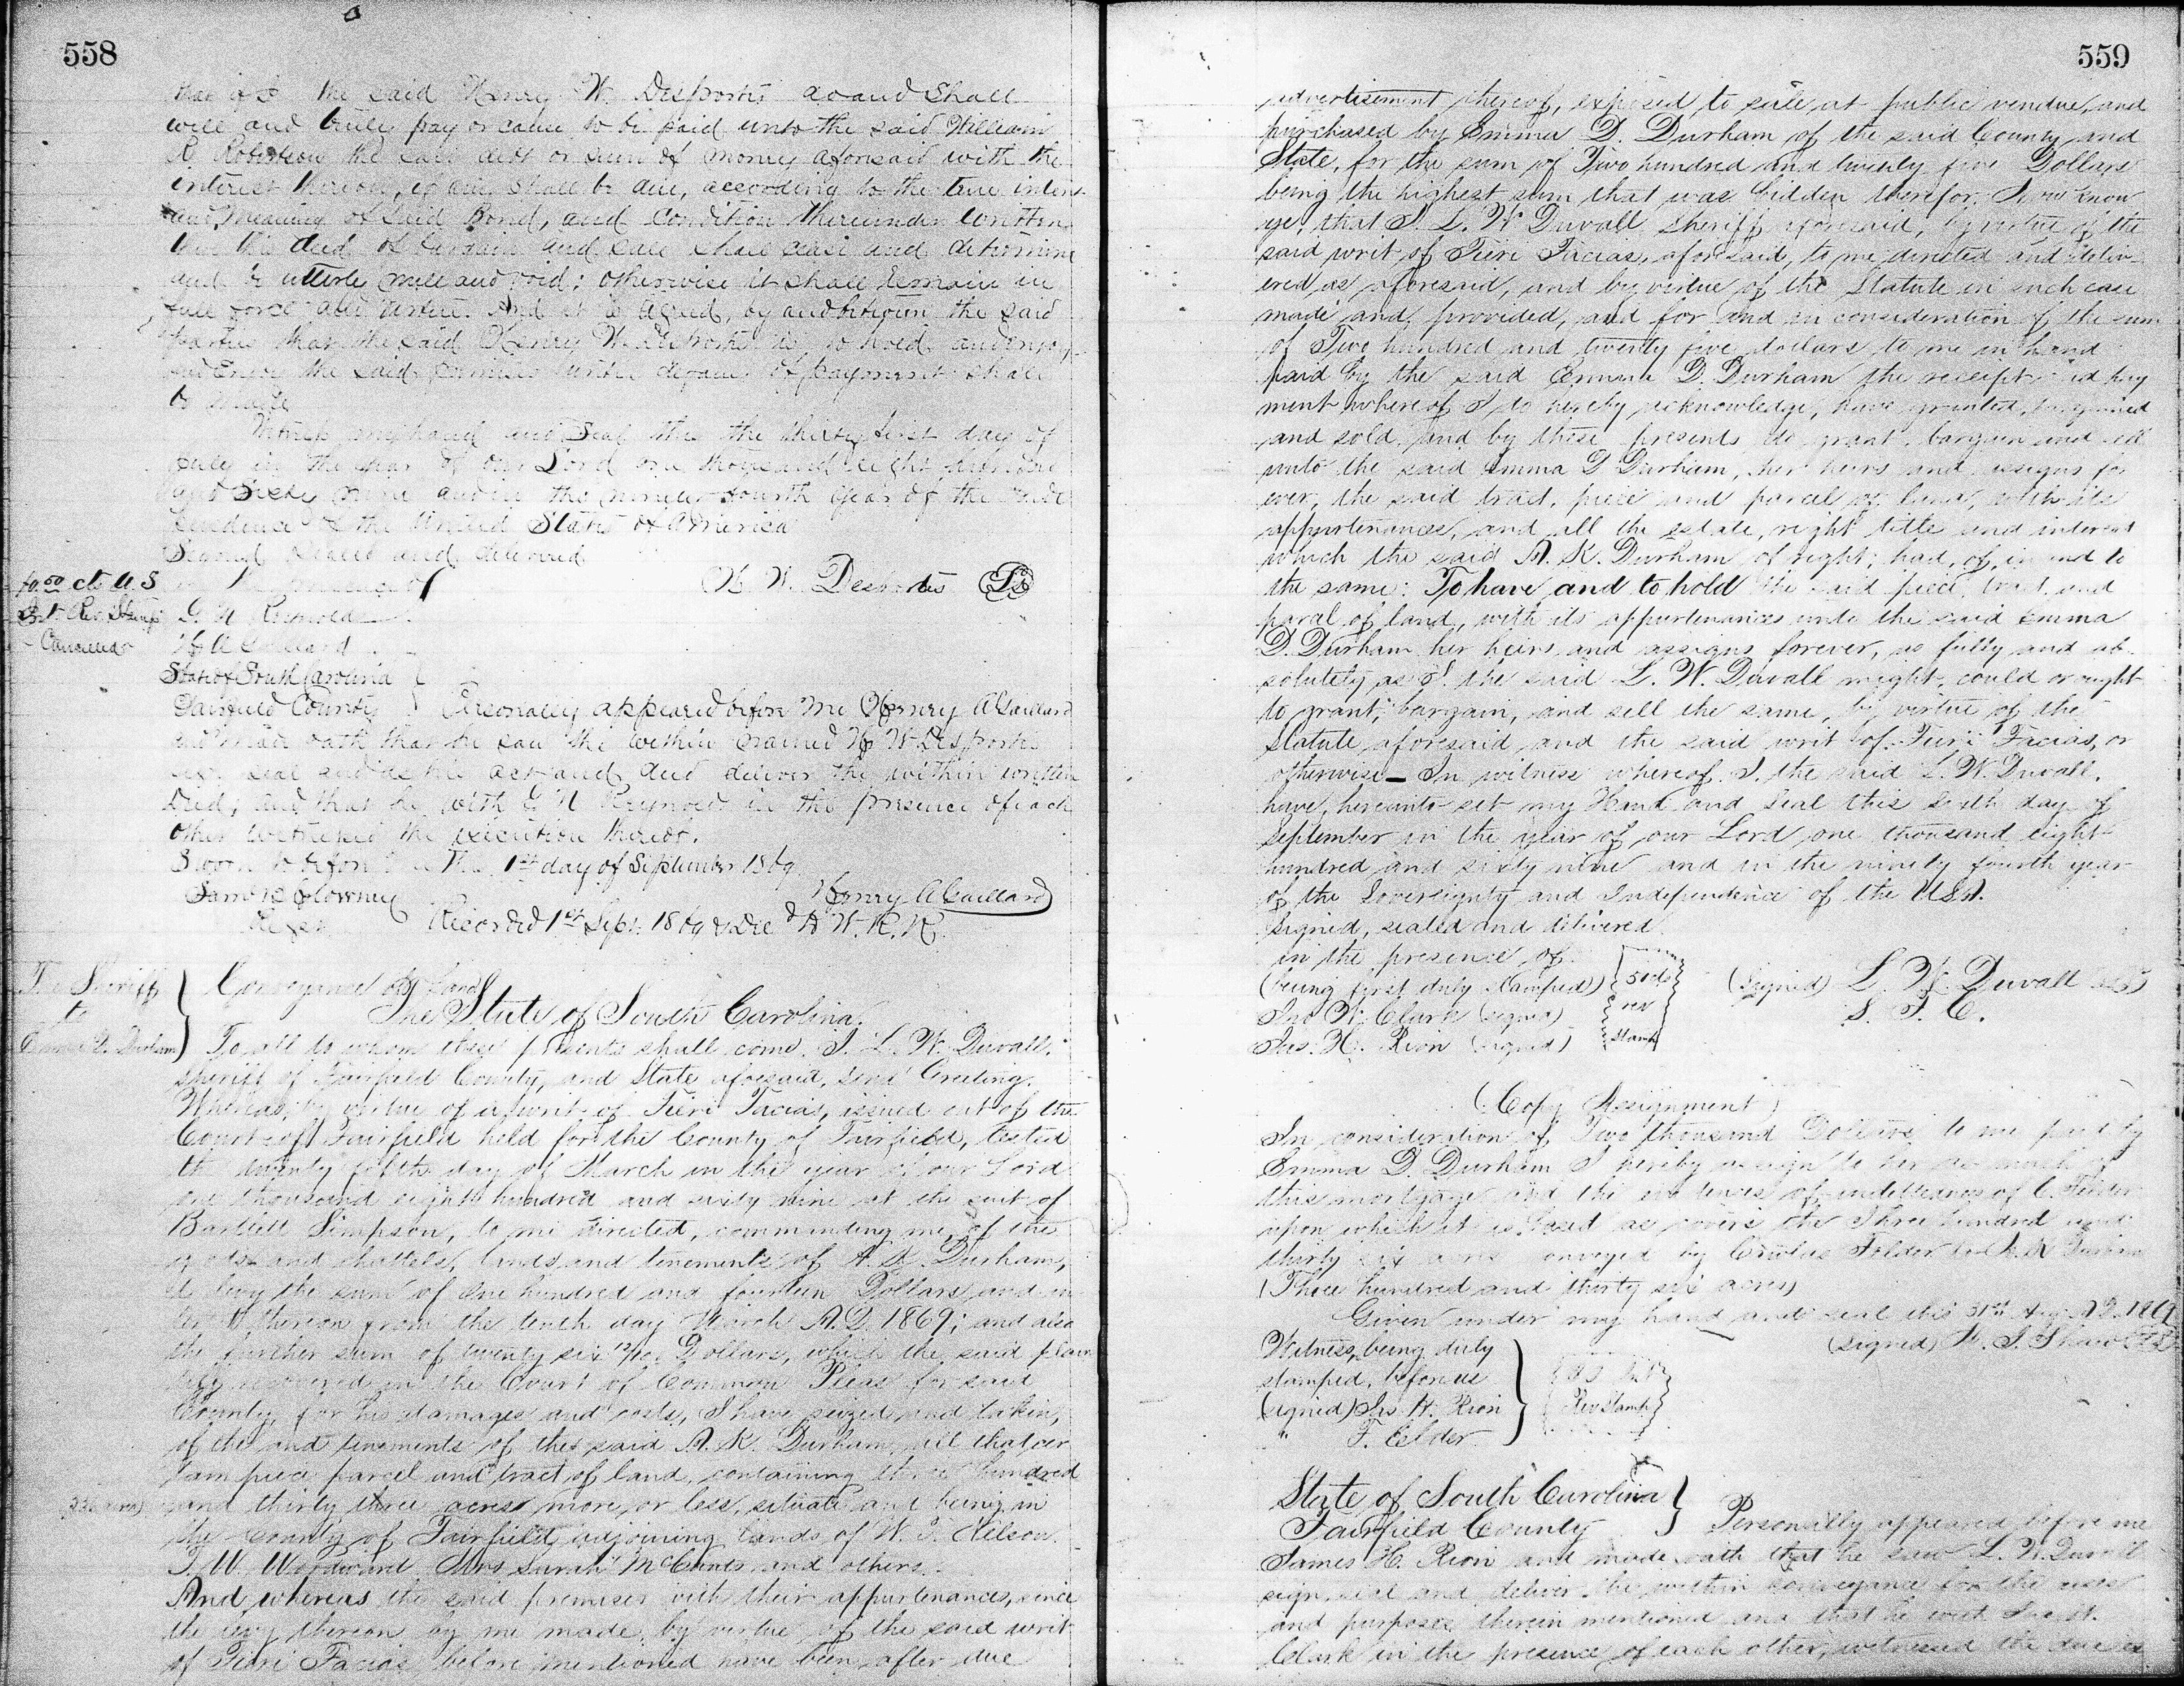 558
that if I the said Henry W. Desportes do and shall
well and truly pay or cause to be paid unto the said William
R. Robertson the said debt or sum of money aforesaid with the
interest thereon, if any shall be due, according to the true intent
and meaning of said Bond, and Condition thereunder written
then this deed of bargain and sale shall cease and determine
and be utterly null and void; otherwise it shall remain in
full force and virtue. And it is agreed, by and between the said
parties that the said Henry W. Desportes is to hold and enjoy
and Enjoy the said premises until default of payment shall
be made
Witness my hand and Seal this the thirty first day of
July in the year of our Lord one thousand eight hundred
and Sixty nine and in the ninety fourth year of the Inde
pendence of the United States of America
Signed Sealed and delivered
in presence of
H. W. Desportes LS
$0.50 cts U.S
Int Rev Stamp
Cancelled
G. N. Reynolds
H. A. Gaillard
State of South Carolina
Fairfield County } Personally appeared before me Henry A Gaillard
and made oath that he saw the within named H. W. Desportes
sign seal and as his act and deed deliver the within written
Deed, and that he with G N Reynolds in the presence of each
other witnessed the execution thereof.
Sworn to before me this 1st day of September 1869
Henry A Gaillard
Saml B Clowney
Recorded 1st Sept. 1869
The Sheriff
to
Emma D. Durham
Conveyance of Land
The State of South Carolina.
To all to whom these presents shall come. I. L. W. Duvall,
Sheriff of Fairfield County, and State aforesaid, send Greeting.
Whereas, by virtue of a writ of Fieri Facias, issued out of the
Court of Fairfield held for the County of Fairfield, tested
the twenty fifth day of March in the year of our Lord
one thousand eight hundred and sixty nine at the suit of
Bartlett Simpson, to me directed, commanding me, of the
goods and chattels, lands and tenements of A. K. Durham,
to levy the sum of One hundred and fourteen Dollars and in
terest thereon from the tenth day March A.D. 1869; and also
the further sum of twenty six Dollars, which the said plain
tiff recovered in the Court of Common Pleas for said
County, for his damages and costs, I have seized and taken,
of the and tenements of the said A. K. Durham, all that cer
tain piece parcel and tract of land, containing three hundred
and thirty three acres more or less, situate and being in
the County of Fairfield, adjoining lands of W. T. Nelson.
T. W. Woodward, Mrs Sarah McCants and others.
And whereas the said premises with their appurtenances, since
the levy thereon by me made, by virtue of the said writ
of Fieri Facias before mentioned have been, after due
559
advertisement thereof, exposed to sale at public vendue, and
purchased by Emma D. Durham of the said County and
State, for the sum of Two hundred and twenty five Dollars
being the highest sum that was bidden therefor. Now know
ye, that I. L. W. Duvall Sheriff aforesaid, by virtue of the
said writ of Fieri Facias, aforesaid, to me directed and deliv-
ered as aforesaid, and by virtue of the Statute in such case
made and provided, and for and in consideration of the sum
of Two hundred and twenty five dollars to me in hand
paid by the said Emma D. Durham the receipt and pay
ment whereof I do hereby acknowledge, have granted, bargained
and sold, and by these presents do grant, bargain and sell
unto the said Emma D Durham, her heirs and assigns for
ever, the said tract, piece and parcel of land, with its
appurtenances, and all the estate, right title and interest
which the said A. K. Durham of right, had, of, in and to
the same: To have and to hold the said piece, tract and
parcel of land, with its appurtenances unto the said Emma
D. Durham her heirs and assigns forever, as fully and ab-
solutely as I. the said L. W. Duvall might, could or ought
to grant, bargain, and sell the same, by virtue of the
Statute aforesaid and the said writ of Fieri Facias, or
otherwise— In witness whereof. I. the said L. W. Duvall.
have hereunto set my Hand and Seal this Sixth day of
September in the year of our Lord one thousand eight
hundred and sixty nine and in the ninety fourth year
of the Sovereignty and Independence of the USA.
Signed, sealed and delivered
in the presence of
(being first duly stamped)
50 cts
rev
stamp
(Signed) L. W. Duvall
S. F. C.
Jno W. Clark (signed)
Jas. H. Rion (signed)
(Copy Assignment)
In consideration of Two thousand Dollars to me paid by
Emma D. Durham I hereby assign to her so much of
this mortgage and the evidences of indebtedness of C. Felder
upon which it is based as covers the Three hundred and
thirty six acres conveyed by Felder to A. K Durham
(Three hundred and thirty six acres)
Given under my hand and seal this 31st Aug. A.D. 1869
(signed)
Witness, being duly
stamped, before us
(signed) Jas H. Rion
" F. Elder
Rev Stamp
State of South Carolina
Fairfield County } Personally appeared before me
James H. Rion and made oath that he saw L. W. Duvall
sign, seal and deliver the within conveyance for the uses
and purposes therein mentioned and that he with Jno W.
Clark in the presence of each other, witnessed the due ex